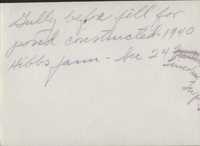 Gully before fill for
pond constructed 1940
Hibbs farm - See 24